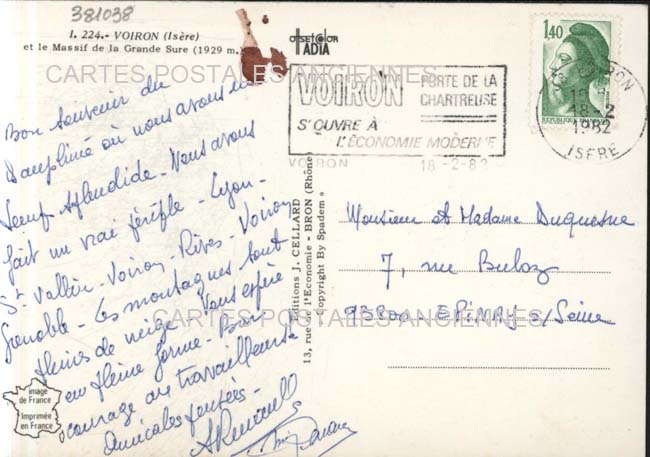 381038
I. 224.- VOIRON (Isère)
et le Massif de la Grande Sure (1929 m.)
OFFSETCOLOR
IADIA
CARTES POSTALES ANCIENNES
Bon souvenir du
Dauphiné où nous avons eu
Temps splendide - Nous avons
fait un vrai périple - Lyon -
St Vallier - Voiron - Rives - Voiron
Grenoble - Les montagnes sont
pleines de neige. Vous espère
en pleine forme - Bon
courage aux travailleurs
Amicales pensées -
image
de France
Imprimée
en France
Editions J. CELLARD
13, rue de l'Economie - BRON (Rhône)
Copyright By Spadem
VOIRON PORTE DE LA
CHARTREUSE
S'OUVRE À
L'ÉCONOMIE MODERNE
VOIRON 18-2-82
1,40
REPUBLIQUE FRANÇAISE
VOIRON
18-2
1982
ISÈRE
Monsieur et Madame Duquesne
7, rue Buloz
93800 - EPINAY s/Seine
CARTES POSTALES ANCIENNES